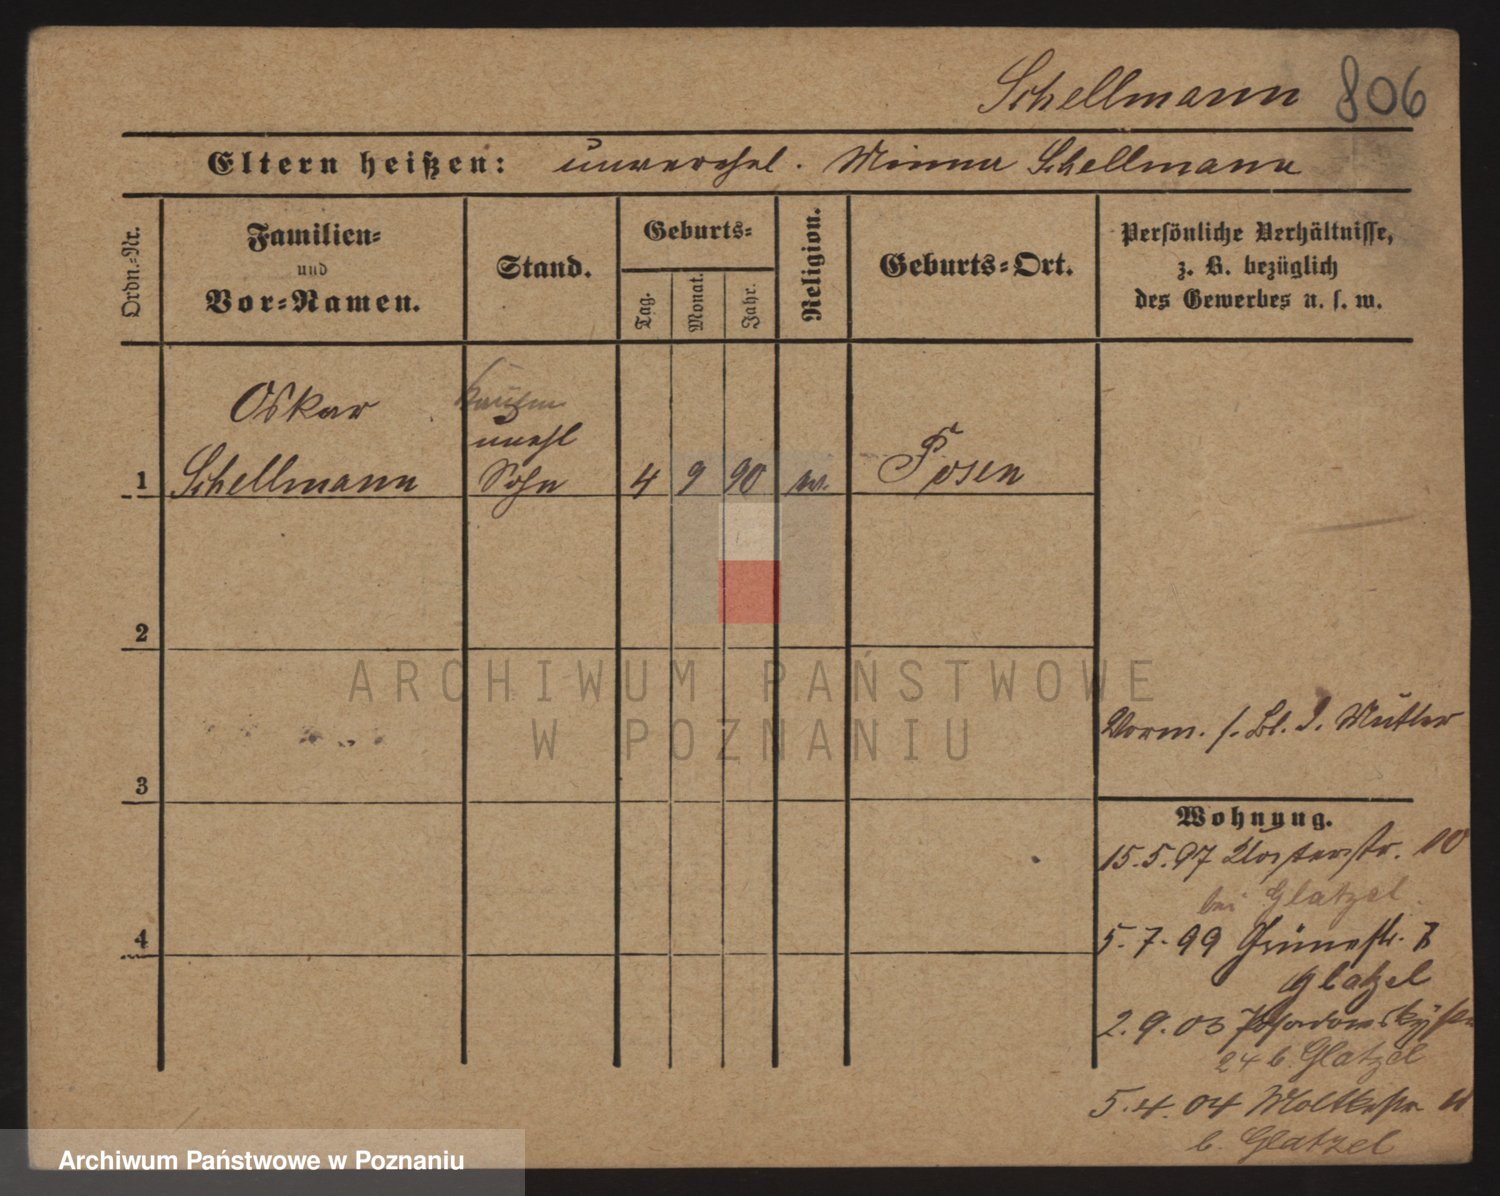 Schellmann 806
Eltern heißen: unverehel. Minna Schellmann
Ordn.-Nr.
Familien-
und
Vor-Namen.
Stand.
Geburts-
Tag.
Monat.
Jahr.
Religion.
Geburts-Ort.
Persönliche Verhältnisse,
z. B. bezüglich
des Gewerbes u. s. w.
Oskar
Kaufm
unehl
1 Schellmann Sohn 4 9 90 Posen
2
3
4
Vorm. s. Bl. d. Mutter
Wohnung.
15.5.97 Klosterstr. 10
bei Glatzel
5.7.99 Grünestr.
Glatzel
2.9.03 Posadowskystr
24 b. Glatzel
5.4.04 Moltkestr
b. Glatzel
ARCHIWUM PAŃSTWOWE
W POZNANIU
Archiwum Państwowe w Poznaniu